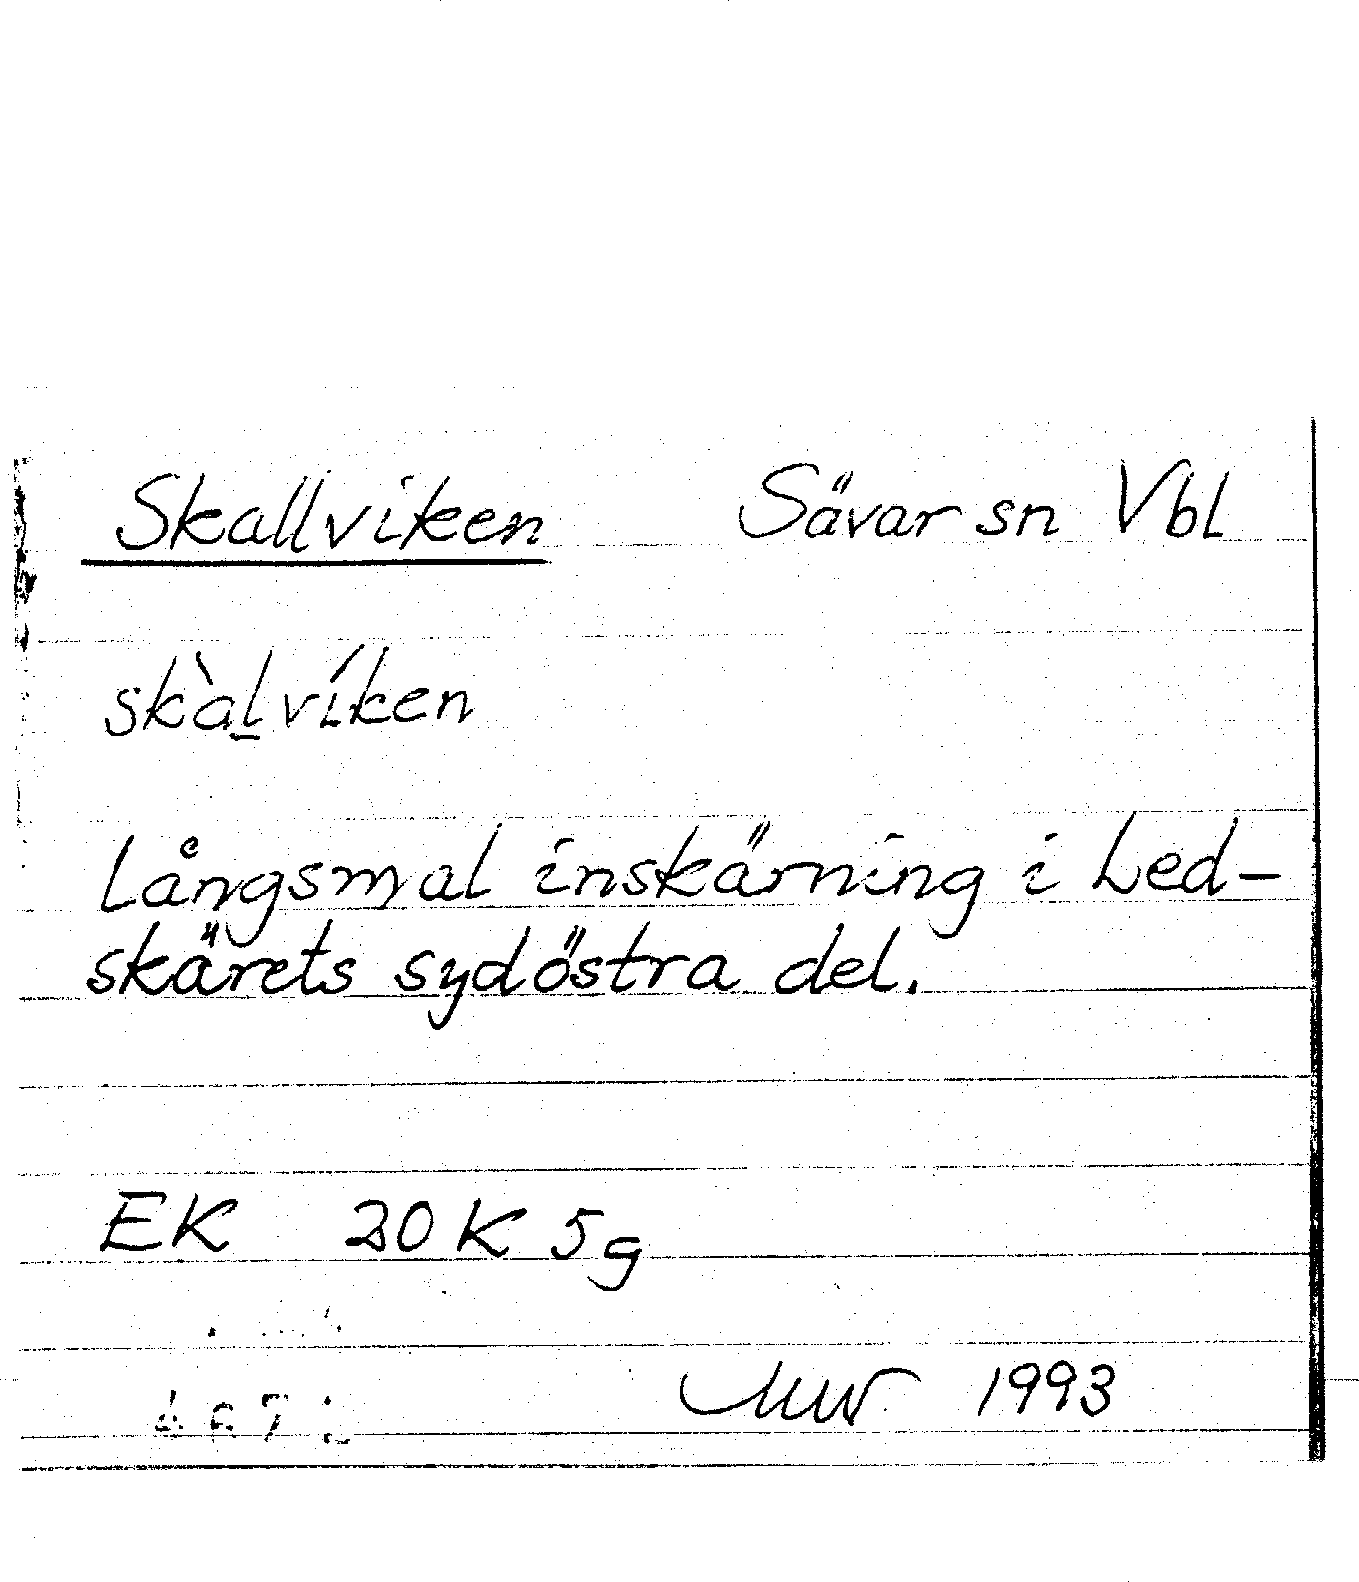 Skallviken Sävar sn Vbl
skàl̲víken
Långsmal inskärning i Led-
skärets sydöstra del.
EK 20 K 5g
MW 1993